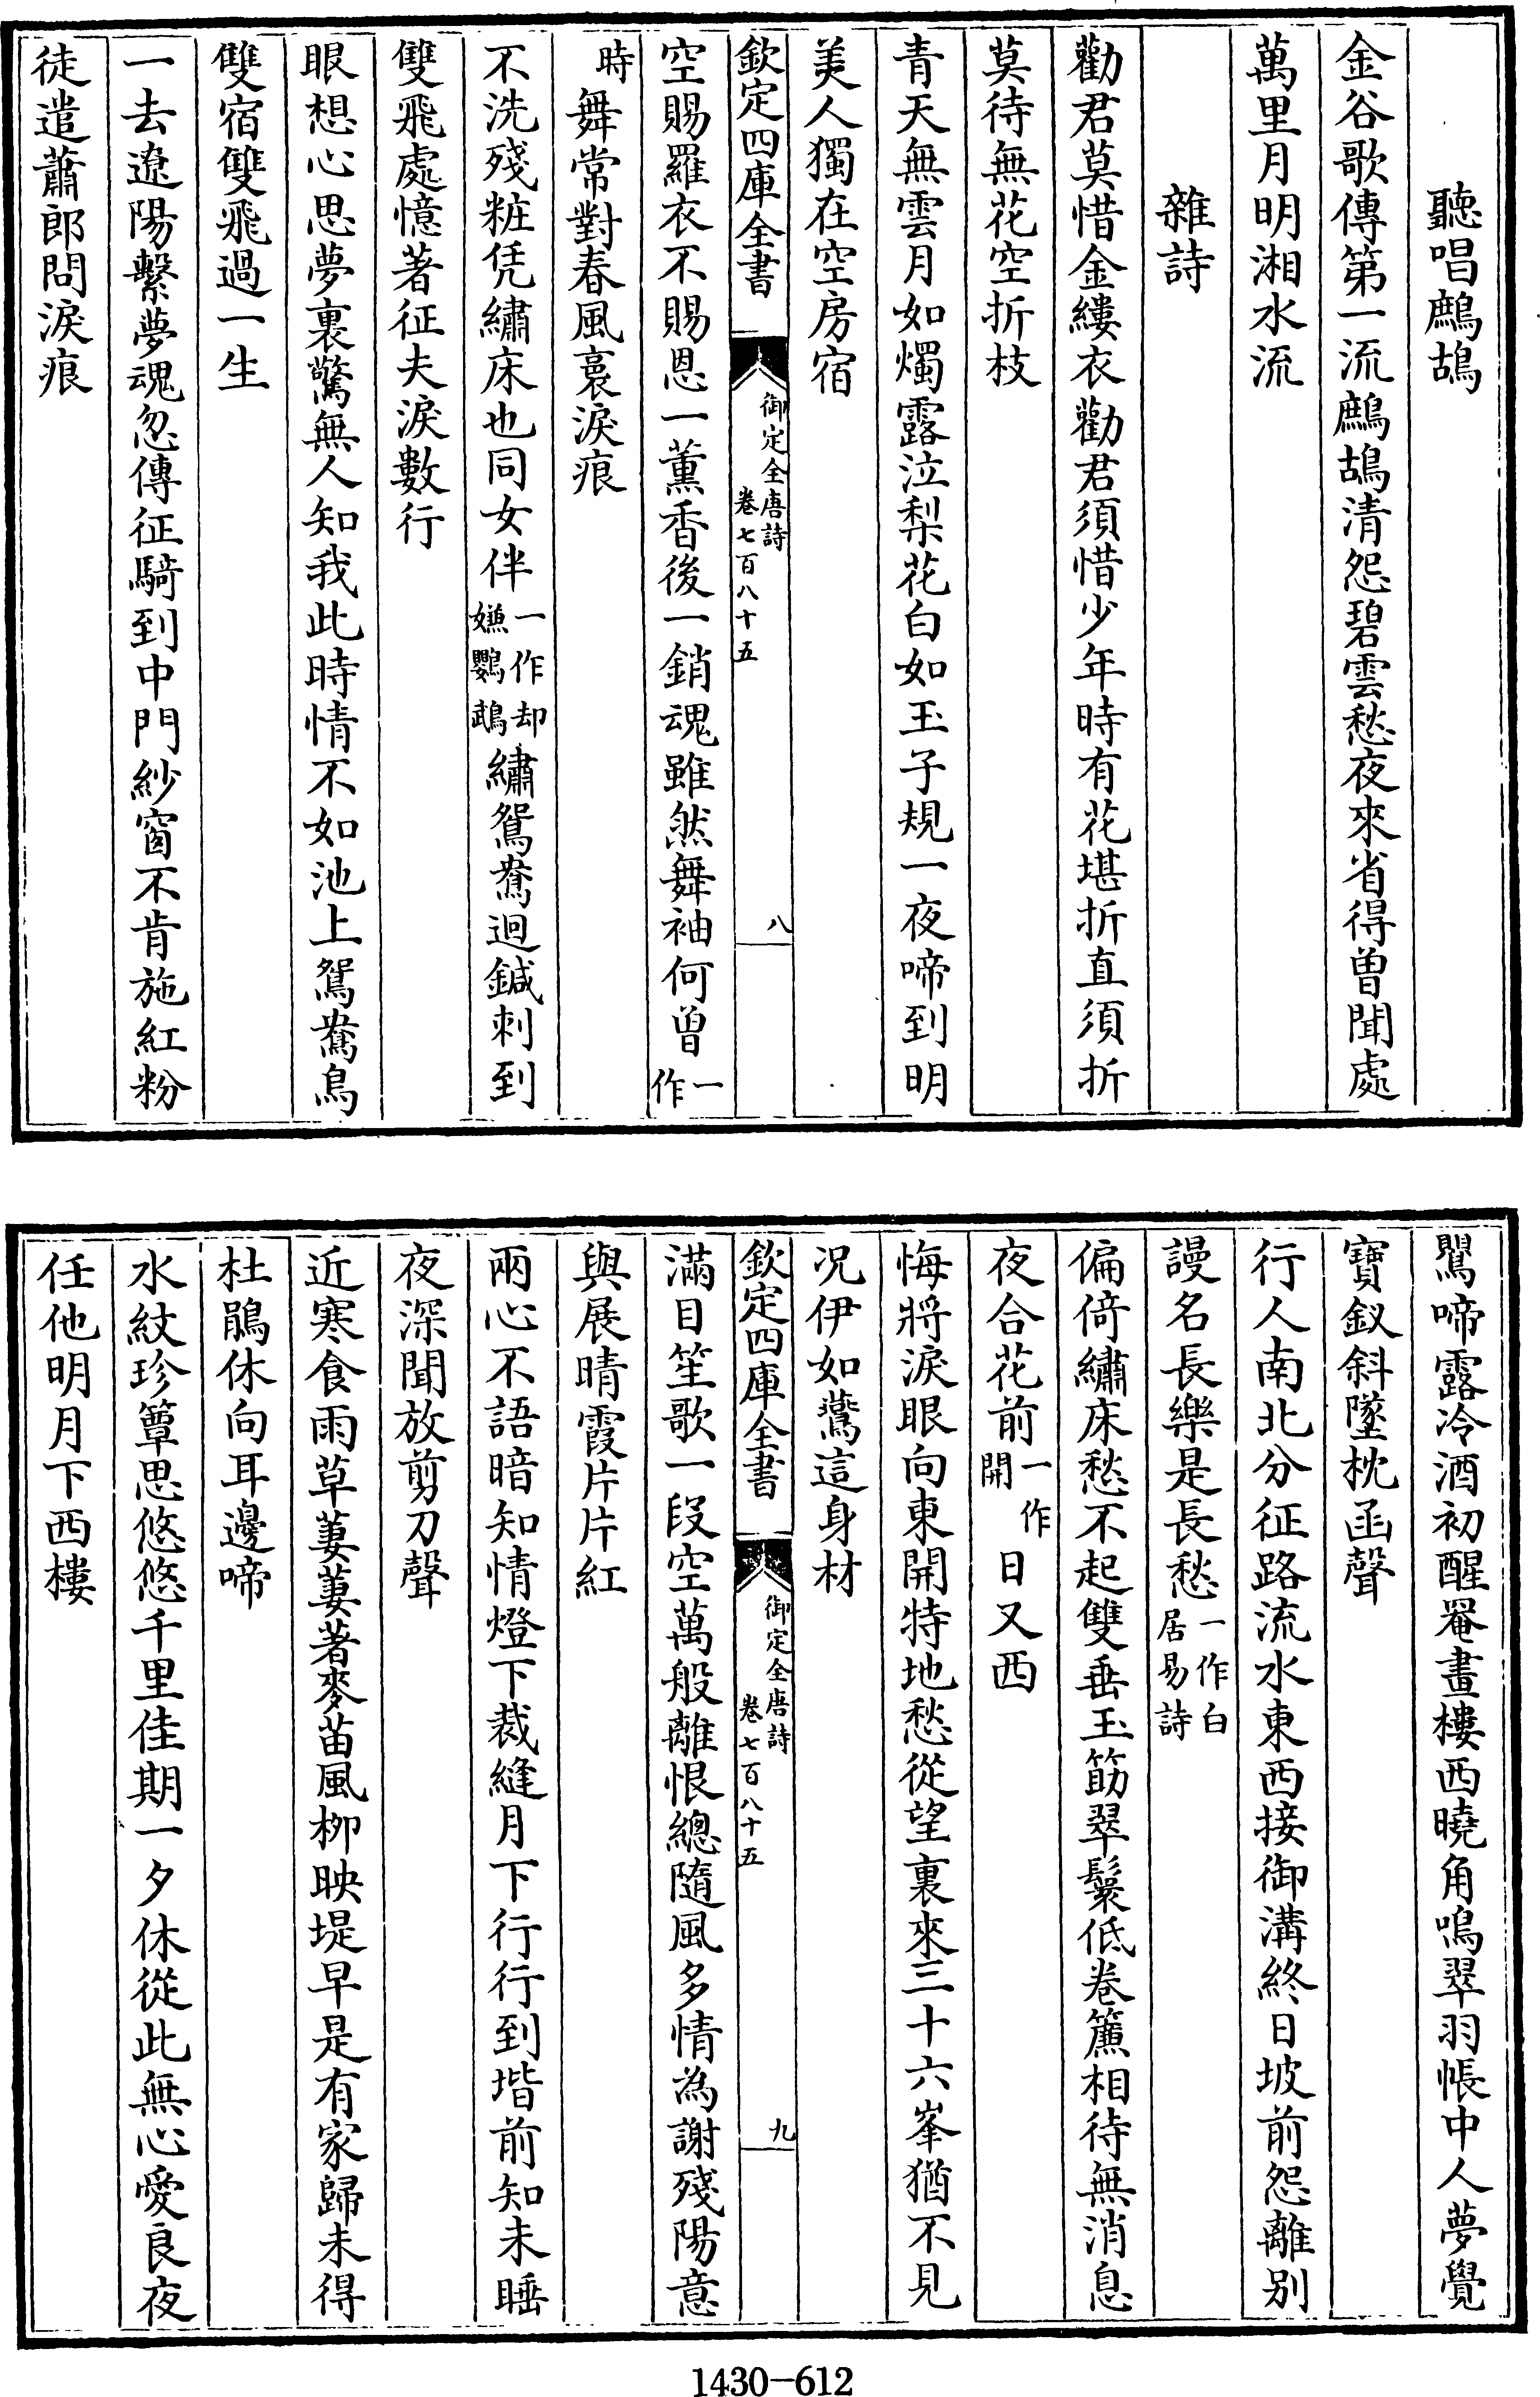 聽唱鷓鴣
金谷歌傳第一流鷓鴣清怨碧雲愁夜來省得曾聞處
萬里月明湘水流
雜詩
勸君莫惜金縷衣勸君須惜少年時有花堪折直須折
莫待無花空折枝
青天無雲月如燭露泣梨花白如玉子規一夜啼到明
美人獨在空房宿
欽定四庫全書
御定全唐詩
卷七百八十五
八
空賜羅衣不賜恩一薰香後一銷魂雖然舞袖何曾一作
時舞常對春風裛淚痕
不洗殘粧凭繡床也同女伴一作却嫌鸚鵡繡鴛鴦迴鍼刺到
雙飛處憶著征夫淚數行
眼想心思夢裏驚無人知我此時情不如池上鴛鴦鳥
雙宿雙飛過一生
一去遼陽繫夢魂忽傳征騎到中門紗窗不肯施紅粉
徒遣蕭郎問淚痕
鸎啼露冷酒初醒罨畫樓西曉角鳴翠羽帳中人夢覺
寶釵斜墜枕函聲
行人南北分征路流水東西接御溝終日坡前怨離別
謾名長樂是長愁一作白居易詩
偏倚繡床愁不起雙垂玉筯翠鬟低卷簾相待無消息
夜合花前一作開日又西
悔將淚眼向東開特地愁從望裏來三十六峯猶不見
况伊如鷰這身材
欽定四庫全書
御定全唐詩
卷七百八十五
九
滿目笙歌一段空萬般離恨總隨風多情為謝殘陽意
與展晴霞片片紅
兩心不語暗知情燈下裁縫月下行行到堦前知未睡
夜深聞放剪刀聲
近寒食雨草萋萋著麥苗風柳映堤早是有家歸未得
杜鵑休向耳邊啼
水紋珍簟思悠悠千里佳期一夕休從此無心愛良夜
任他明月下西樓
1430-612